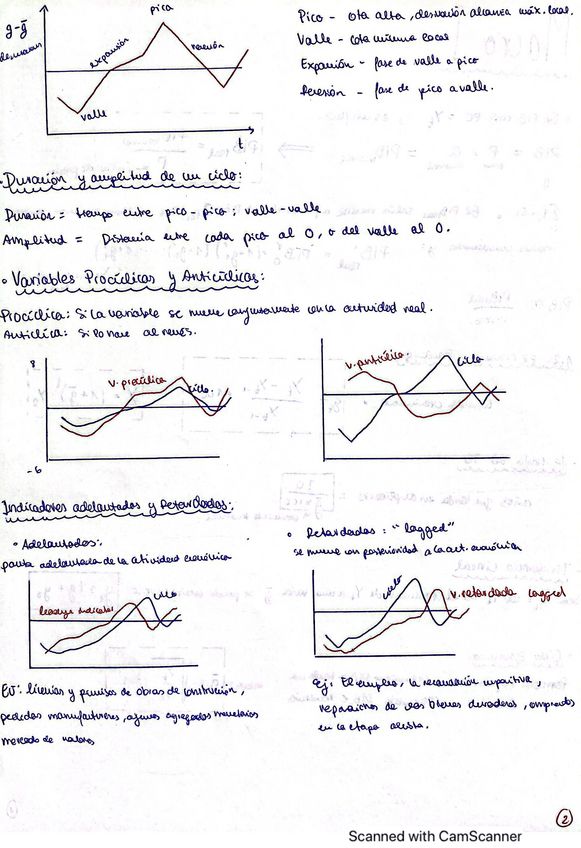 g-ḡ
desviación
pico
expansión
recesión
valle
t
Pico - cota alta, desviación alcanza máx. local.
Valle - cota mínima local
Expansión - fase de valle a pico
Recesión - fase de pico a valle.
· Duración y amplitud de un ciclo:
Duración = tiempo entre pico-pico; valle-valle
Amplitud = Distancia entre cada pico al 0, o del valle al 0.
· Variables Procíclicas y Anticíclicas:
Procíclica: Si la variable se mueve conjuntamente con la actividad real.
Anticíclica: Si lo hace al revés.
8
v. procíclica
ciclo
-6
v. anticíclica
ciclo
Indicadores adelantados y Retardados:
· Adelantados:
pauta adelantada de la actividad económica
leading indicator
ciclo
EJ: licencias y permisos de obras de construcción,
pedidos manufactureros, algunos agregados monetarios
mercado de valores
· Retardados: "lagged"
se mueve con posterioridad a la act. económica
ciclo
v. retardada lagged
Ej: El empleo, la recaudación impositiva,
reparaciones de los bienes duraderos, comprados
en la etapa alcista.
2
Scanned with CamScanner